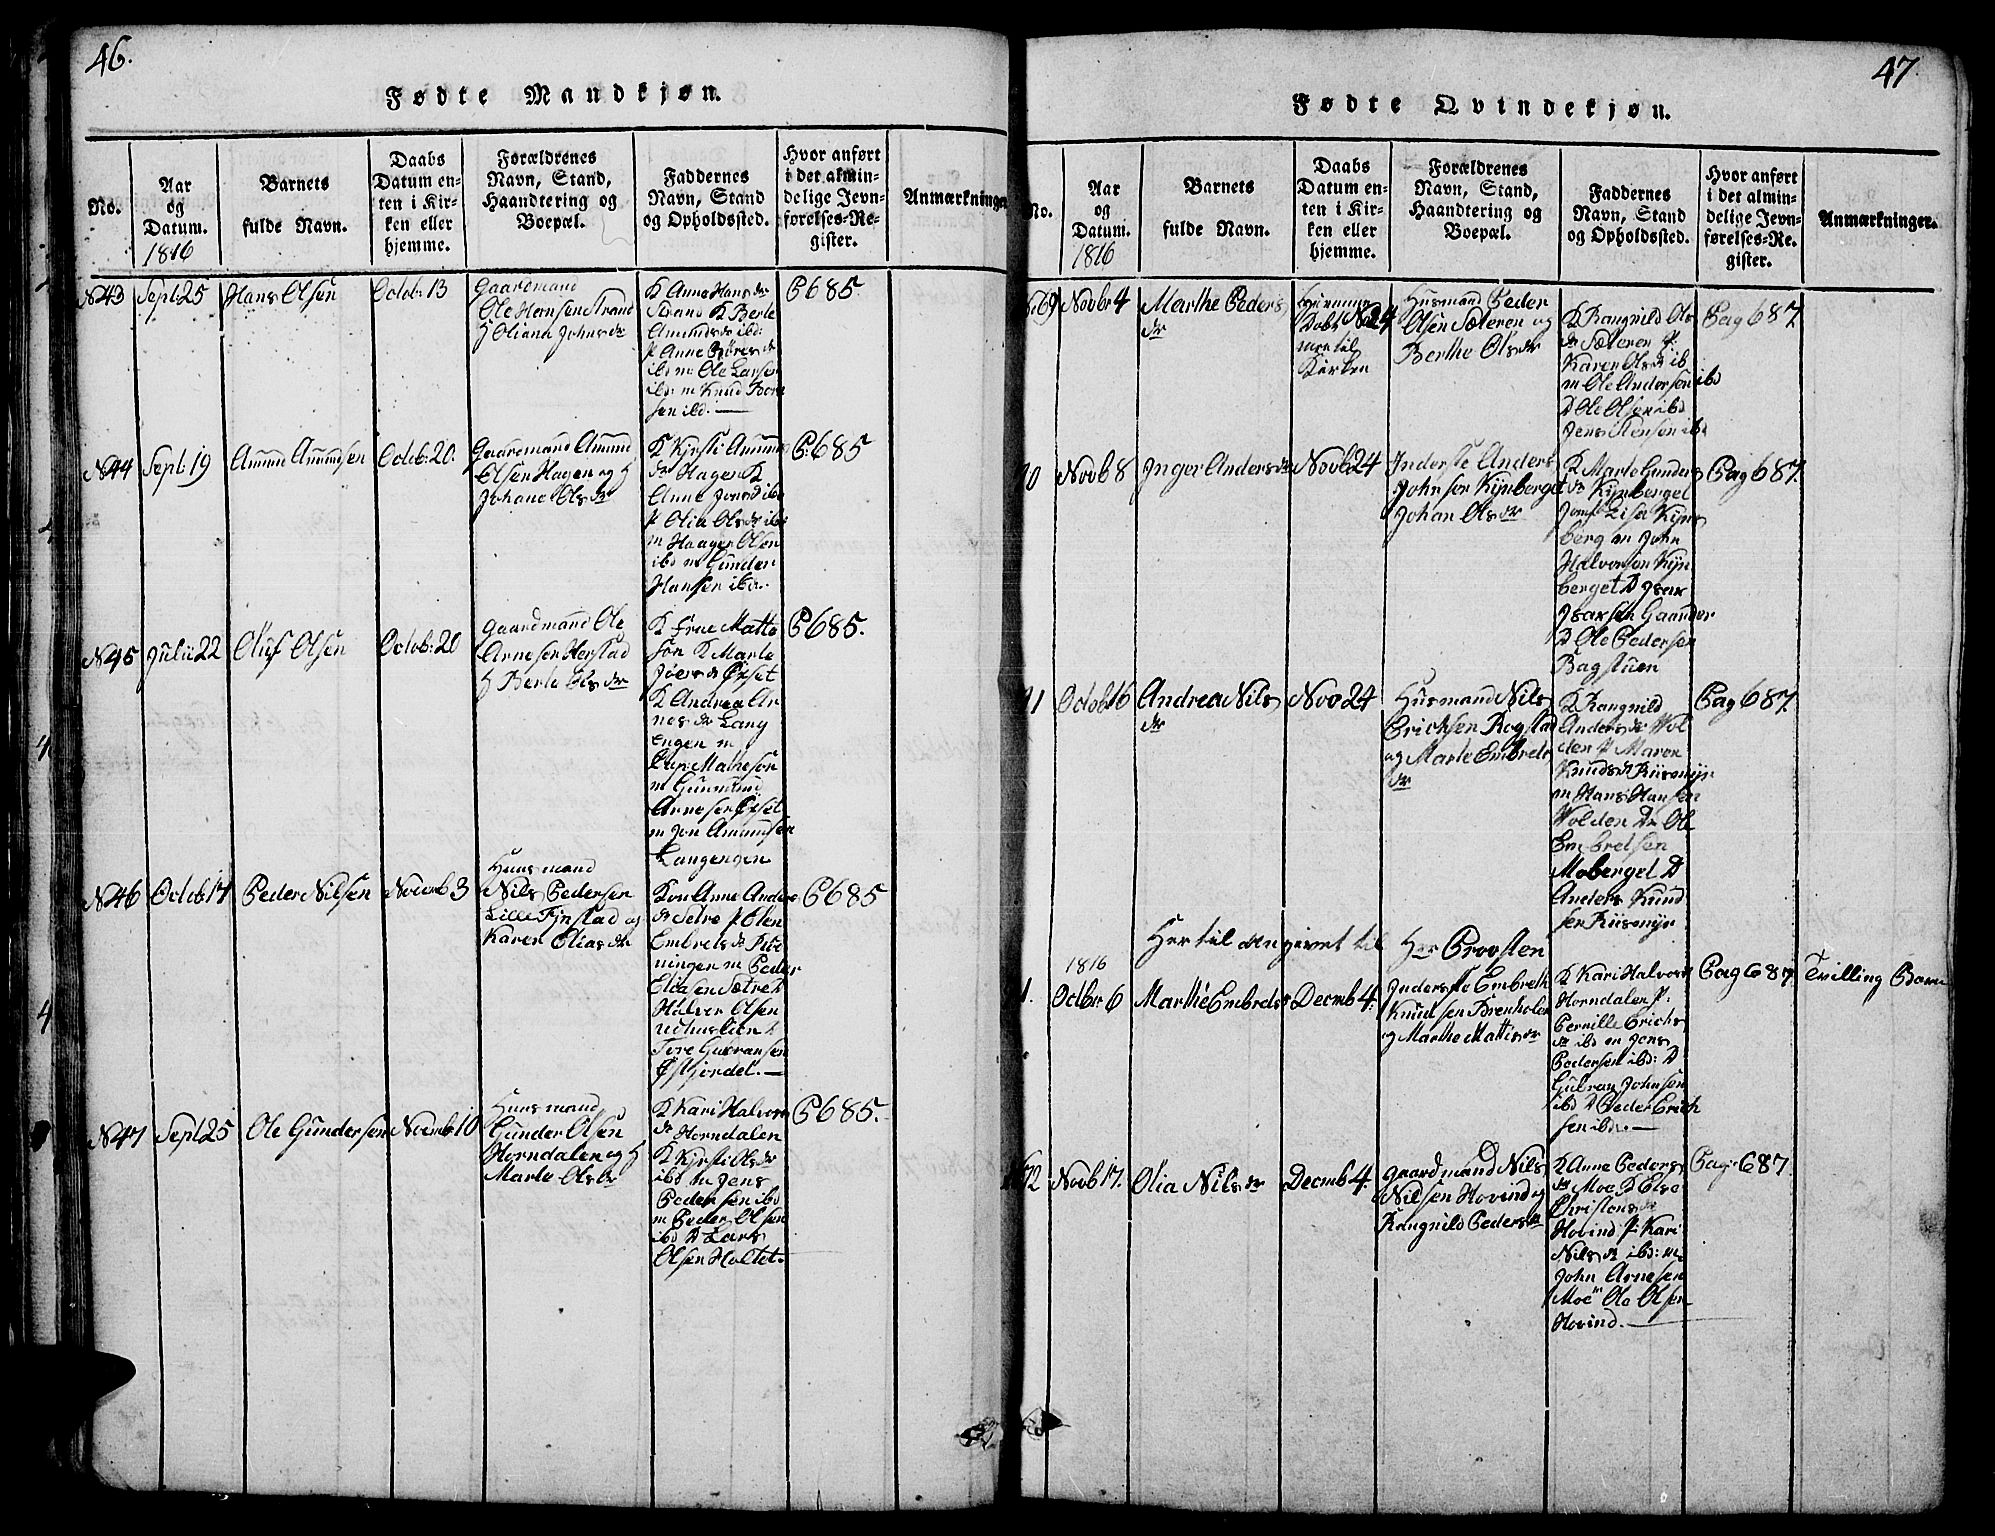 46.
Fødte Mandkjøn.
No.
Aar
og
Datum.
1816
Barnets
fulde Navn.
Daabs
Datum en-
ten i Kir-
ken eller
hjemme.
Forældrenes
Navn, Stand,
Haandtering og
Boepæl.
Faddernes
Navn, Stand
og Opholdssted.
Hvor anført
i det almin-
delige Jevn-
førelses-Re-
gister.
Anmærkninger
N43
Sept: 25
Hans Olsen
Octob: 13
Gaardmand
Ole Hansen Strand
Oliana Johnsdr
K Anne Hansdr
Strand K Berte
Amundsdr ibd:
P Anne
ibd m: Ole Larsen
ibd: m Knud
sen ibd.
P685.
N44
Sept: 19
Amund Amundsen
Octob: 20.
Gaardmand Amund
Olsen Hagen og
Johane Olsdr
K Kjrsti Amunds
dr Hagen K
Anne Jonsd ibd
P Olia Olsdr ibd
m Haagen Olsen
ibd m Gunder
Hansen ibd.
P:685
N45
Julii 22
Oluf Olsen
Octob: 20
Gaardmand Ole
Arnesen Herstad
Berte Olsdr
K Matte
K Marte
K Andrea Ar
nesdr Lang
engen m
m Gunmund
Arnesen
m Jon Amundsen
Langengen
P685.
N46
Octob 14
Peder Nilsen
Novemb 3
Huusmand
Nils Pedersen
Lille Fjnstad og
Karen Eliasdr
Kon Anne Anders
dr Sætre P Elen
Embretsdr
ningen m Peder
Eliasen Sætre
Halvor Olsen
Tore Gulransen
P685
N47
Sept 25
Ole Gundersen
Novemb 10
Huusmand
Gunder Olsen
Horndalen og
Marte Olsdr
K Kari Halvors
dr Horndalen
K Kjrsti Olsdr
ibd m Jens
Pedersen ibd
m Peder Olsen
ibd D Lars
Olsen Holtet.
P685.
47.
Fødte Qvindekjøn.
No.
Aar
og
Datum.
1816
Barnets
fulde Navn.
Daabs
Datum en-
ten i Kir-
ken eller
hjemme.
Forældrenes
Navn, Stand,
Haandtering og
Boepæl.
Faddernes
Navn, Stand
og Opholdssted.
Hvor anført
i det almin-
delige Jevn-
førelses-Re-
gister.
Anmærkninger.
Novbr 4
Marthe Peders
dr
Hiemme
Døbt Nov 24
til
Kirken
Husmand Peder
Olsen Sæteren og
Berthe Olsdr
K Rangnild Ols
dr Sæteren P:
Karen Olsdr ib
m Ole Andersen ibd
D Ole Olsen ibd
Jens Stensen ibd
Pag 687.
Novb 8
Inger Andersdr
Novb 24
Inderste Anders
Johnsen Kynberget
Johan Olsdr
K Marte Gunders
dr Kynberget
Jomf Lise Kyn
berg m John
Halvorsen Kyn
berget D Isax
Isaxsen Gaarder
D Ole Pedersen
Bagstuen
Pag 687.
Octob 16
Andrea Nils
dr
Nov 24
Husmand Nils
Erichsen Rogstad
og Marte Embrets
dr
K Rangnild
Andersdr Vol
den P Maren
Knudsdr Kiusmyr
m Hans Hansen
Volden D Ole
Embretsen
Moberget D
Anders Knud
sen Kiusmyr
Pag 687.
Her til angivet til
Hr Provsten
1816
1.
Octbr 6
Marthe Embrets
Decmb 4.
Inderste Embreth
Knudsen Brenholen
og Marthe Mattisdr
K Kari Halvors
Horndalen P:
Pernille Erichs
dr ibd m Jens
Pedersen ibd: D
Gulran Johnsen
ibd D Peder Erich
sen ibd.
Pag 687.
Tvilling Barn
Novb 17.
Olia Nilsdr
Decmb 4.
Gaardmand Nils
Nilsen Hovind og
Rangnild Pedersdr
K Anne Peders
dr Moe D Else
Christensdr
Hovind P: Kari
Nilsdr ibd: m
John Arnesen
Moe m Ole Olsen
Hovind.
Pag: 687